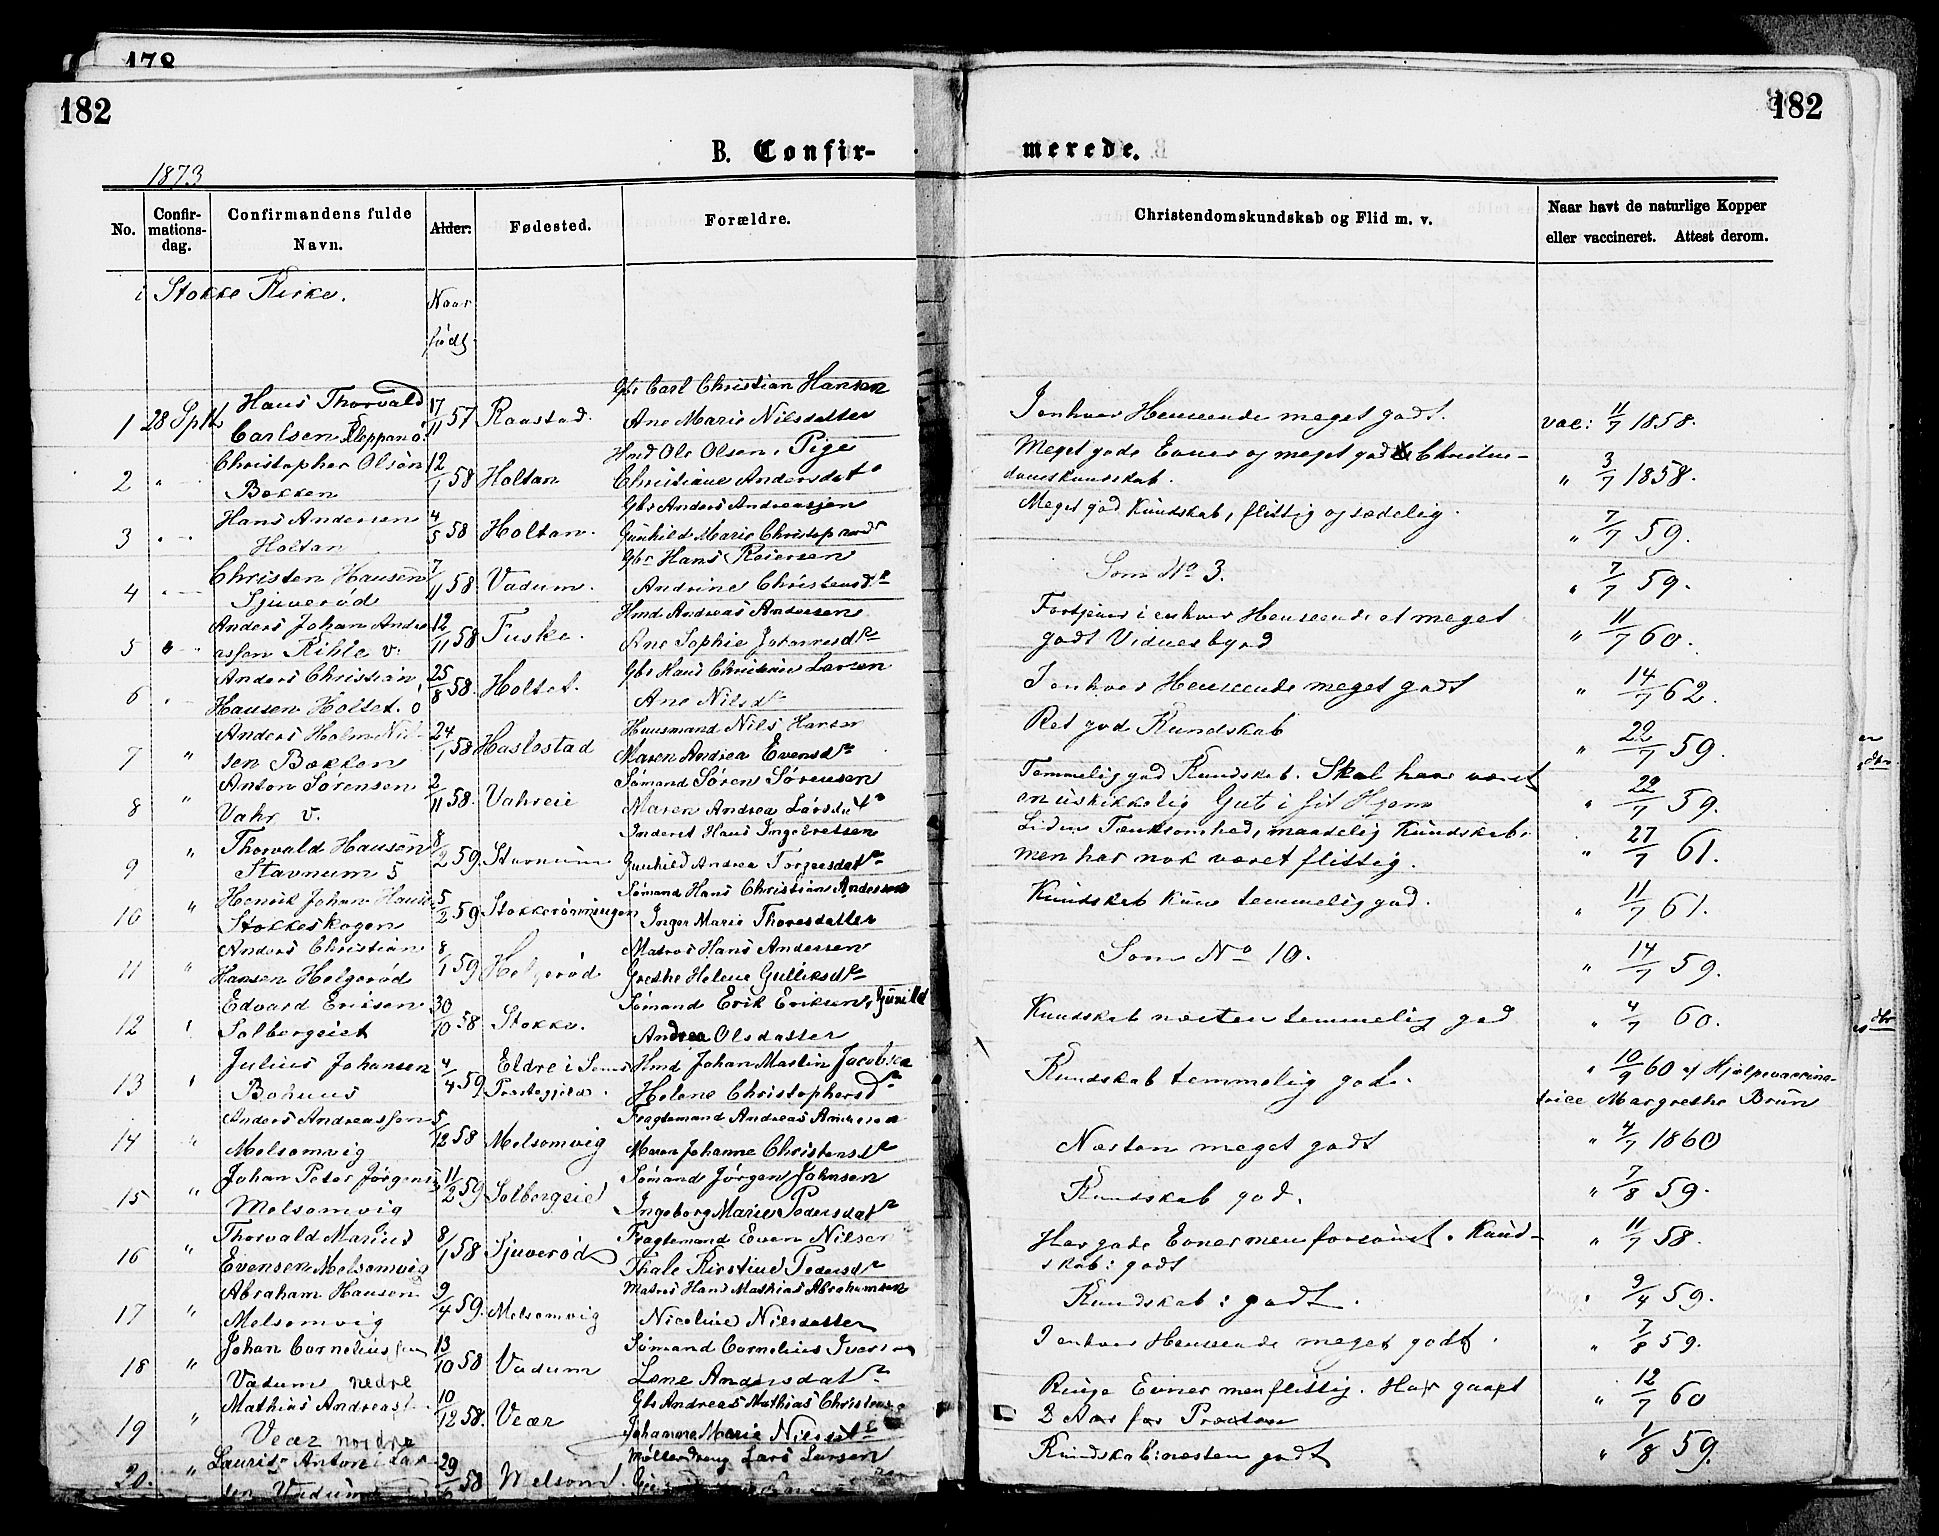 178
182
182
B. Confir-
merede.
1873
No.
Confir-
mations-
dag.
Confirmandens fulde
Navn.
Alder.
Fødested.
Forældre.
Christendomskundskab og Flid m. v.
Naar havt de naturlige Kopper
eller vaccineret. Attest derom.
i Stokke Kirke.
Naar
født
Gbr Carl Christian Hansen
1 28 Sptb Hans Thorvald 17/11 57 Raastad. Ane Marie Nilsdatter I enhver Henseende meget godt. vac: 11/7 1858.
Carlsen Kleppanø.
Hmd Ole Olsen, Pige
2 " Christopher Olsen 12/1 58 Holtan Christiane Andersdatr Meget gode Evner og meget god Christen-
Bakken domskundskab. " 3/7 1858.
Gbr Anders Andreassen
3 " Hans Andersen 4/5 58 Holtan. Gunhild Marie Meget god Kundskab, flittig og sædelig. " 7/7 59.
Holtan
Gbr Hans Reiersen
4 " Christen Hansen 7/11 58 Vadum. Andrine Christensdr Som No 3. " 7/7 59.
Sjuverød
Hmd Andreas Andersen
5 " Anders Johan Andre 12/11 58 Fuske. Ane Sophie Fortjener i enhver Henseende et meget
assen Kihle v. godt Vidnesbyrd " 11/7 60.
Gbr Hans Christian Larsen
6 " Anders Christian 25/8 58. Holtet. Ane Nilsdr I enhver Henseende meget godt " 14/7 62.
Hansen Holtet. ø
Huusmand Nils Hansen
7 " Anders Holm Nil- 24/1 58 Haslestad Maren Andrea Evensdr Ret god Kundskab " 22/7 59.
sen Bakken
Sømand Søren Sørensen
8 " Anton Sørensen 2/11 58. Vahreie Maren Andrea Larsdatr Temmelig god Kundskab. Skal have været
Vahr v. en uskikkelig Gut i sit Hjem " 22/7 59.
Inderst Hans Ingebretsen
9 " Thorvald Hansen 8/2 59. Stavnum Gunhild Andrea Torgersdatr Liden Tænksomhed, maadelig Kundskab,
Stavnum S men har nok været flittig. " 27/7 61.
Sømand Hans Christian Andersen
10 " Henrik Johan Hanse 5/2 59 Stokkerønningen Inger Marie Thoresdatter Kundskab kun temmelig god. " 11/7 61.
Stokkeskogen
Matros Hans Andersen
11 " Anders Christian 8/1 59 Helgerød Grethe Helene Gulliksdr Som No 10. " 14/7 59.
Hansen Helgerød
Sømand Erik Eriksen, Gunild
12 " Edvard Eriksen 30/10 58 Stokke. Andrea Olsdatter Kundskab næsten temmelig god " 4/7 60.
Solbergeiet
13 " Julius Johansen 4/4 59 Eldre i Sems Hmd Johan Martin Jacobsen Kundskab temmelig god. " 10/9 60 af Hjelpevaccina-
Bohuus Præstegjeld. Helene Christophersdr trice Margrethe Brun
Fragtemand Andreas
14 " Anders Andreassen 5/12 58 Melsomvig Maren Johanne Christensdr Næsten meget godt " 4/7 1860
Melsomvig
Sømand Jørgen Johnsen
15 " Johan Peter Jørgens 11/2 59 Solbergeie Ingeborg Marie Pedersdatr Kundskab god. " 7/8 59.
Melsomvig
Fragtemand Even Nilsen
16 " Thorvald Marius 8/1 58 Sjuverød Thale Kirstine Pedersdr Har gode Evner men forsømt. Kund-
Evensen Melsomvig skab: godt " 11/7 58.
Matros Hans Mathias Abrahamsen
17 " Abraham Hansen 9/4 59. Melsomvig Nicoline Nilsdatter Kundskab: godt. " 9/4 59.
Melsomvig
Sømand Cornelius Iversen
18 " Johan Corneliussen 13/10 58 Vadum Lene Andersdatr I enhver Henseende meget godt. " 7/8 59.
Vadum nedre
Gbr Andreas Mathias Christens
19 " Mathias Andreass 10/12 58. Vear Johanne Marie Ringe Evner men flittig. Har gaaet
Vear nordre 2 Aar for Præsten " 12/7 60
Møllerdreng Lars Larsen
20. " Laurits Anton Lar- 29/6 58 Melsom. Kundskab: næsten godt " 1/8 59.
sen Vadum